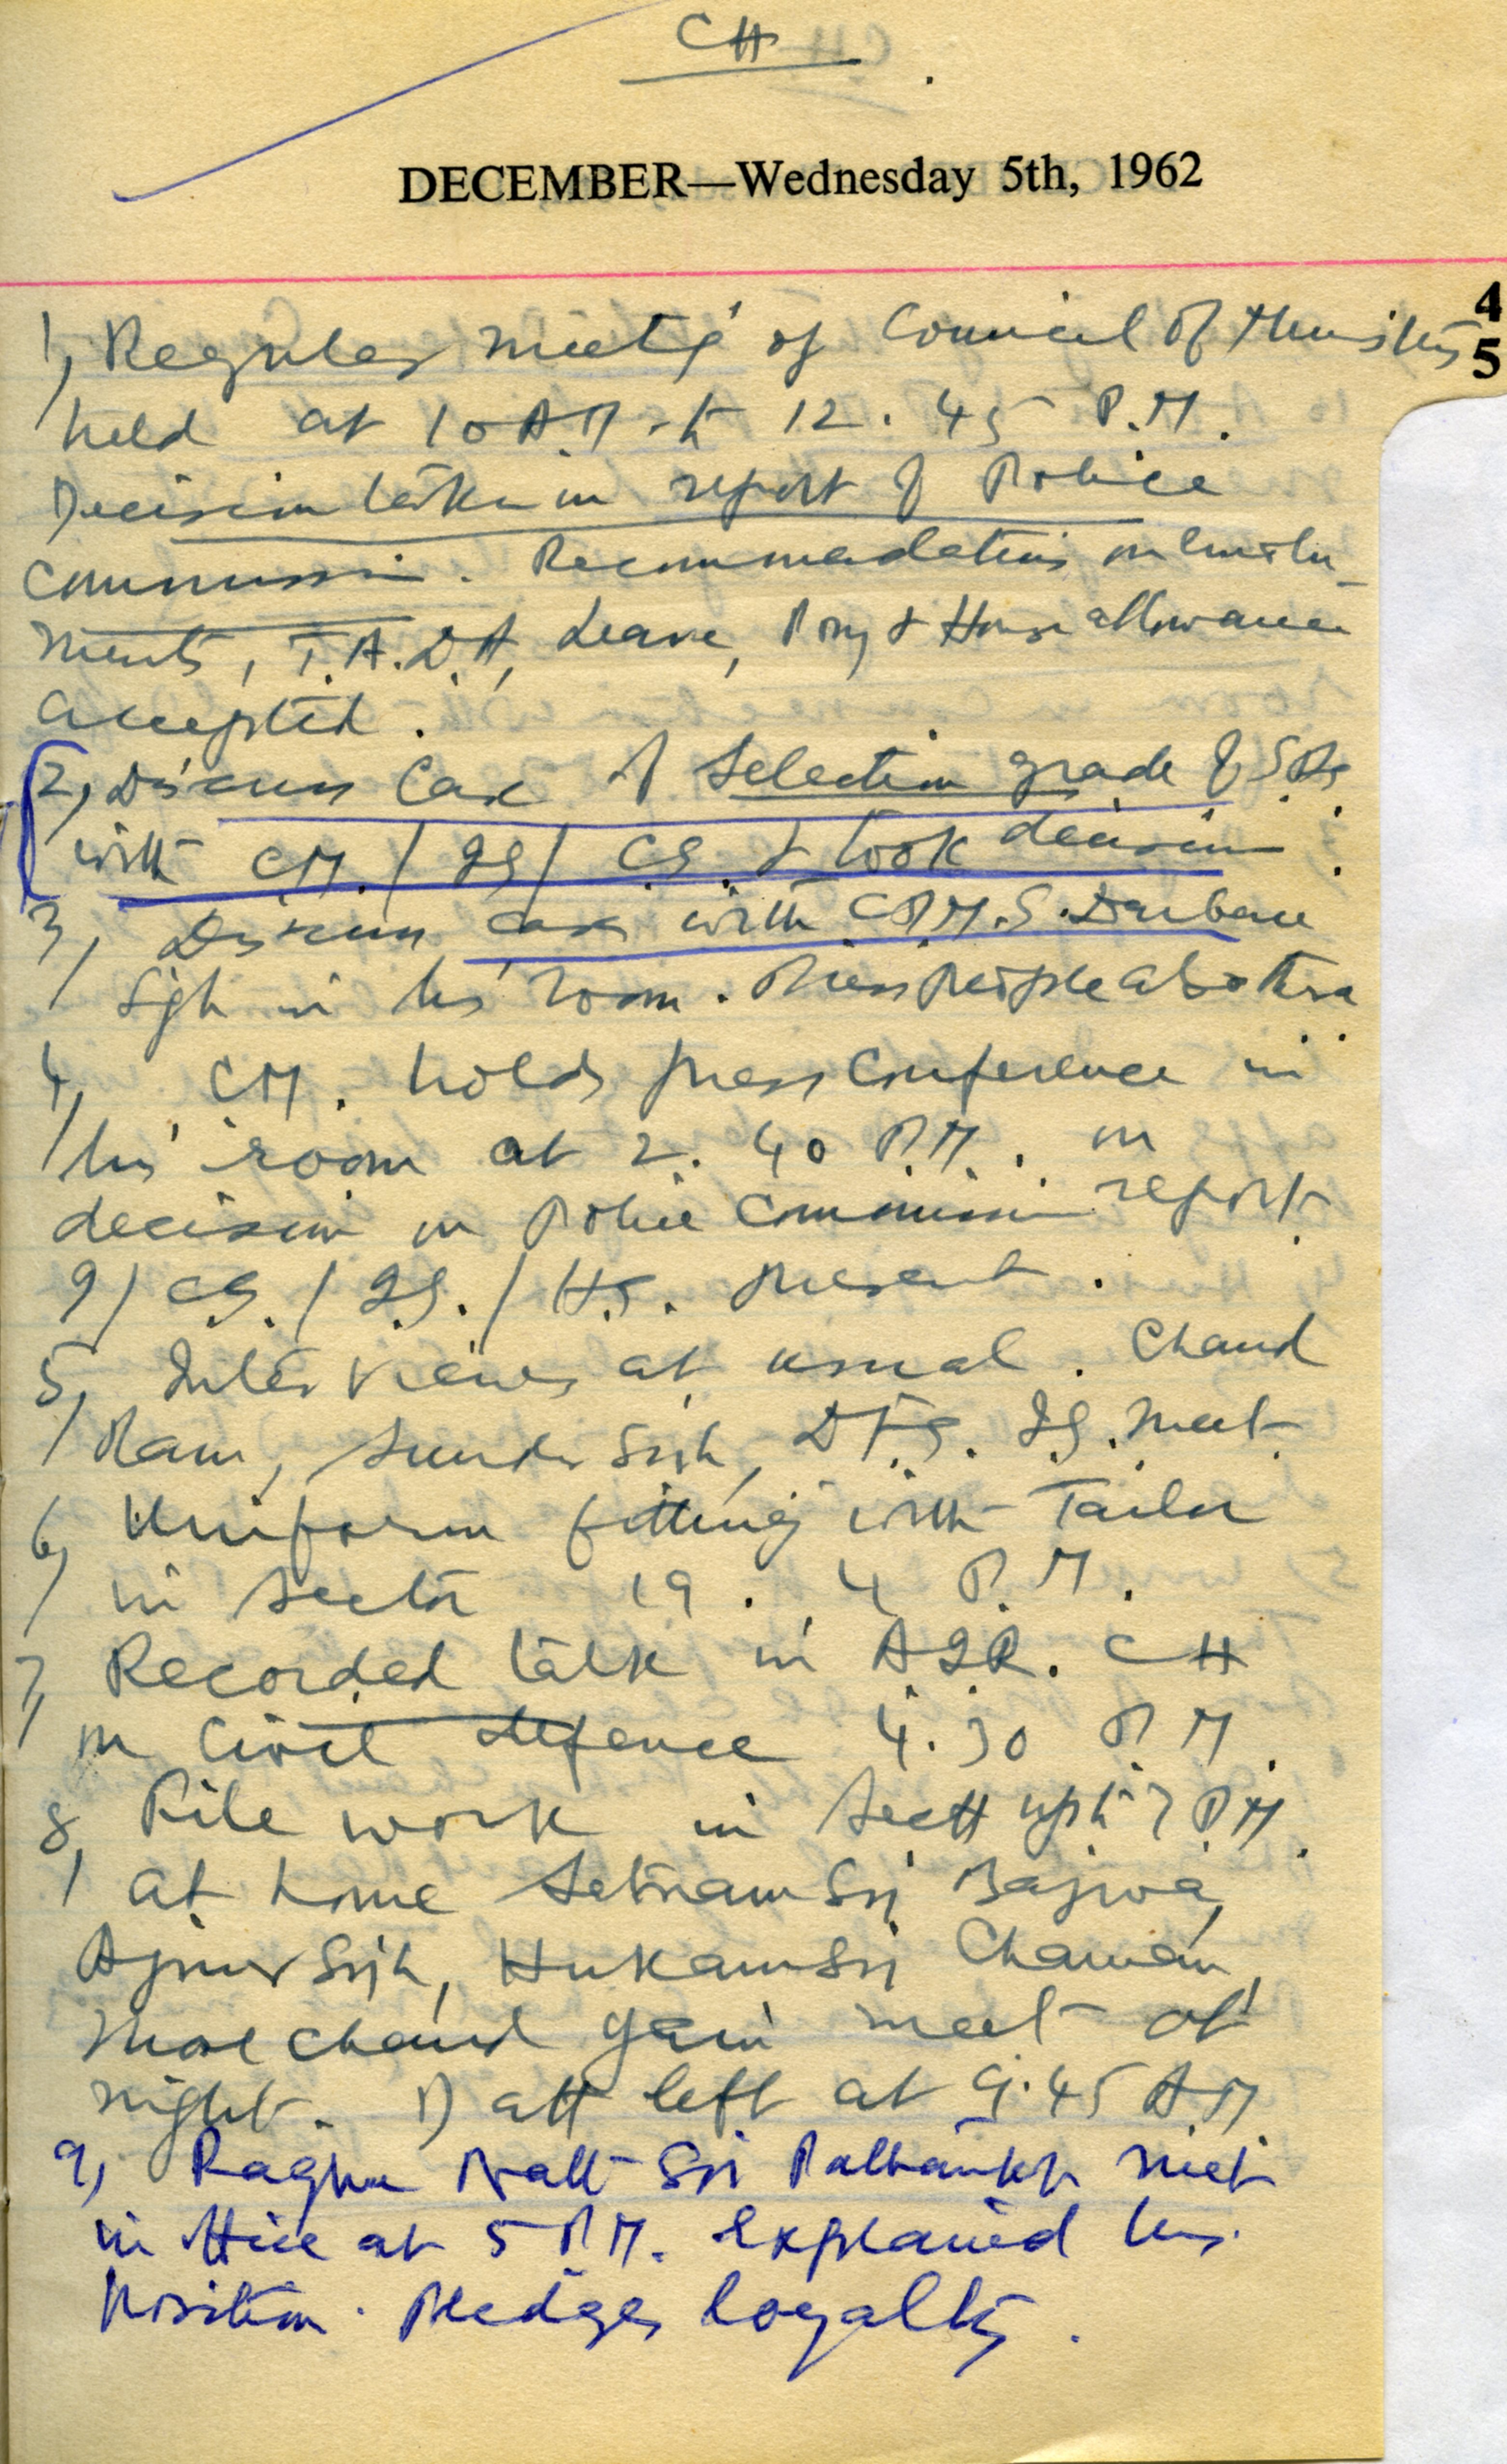 CH
DECEMBER—Wednesday 5th, 1962
4
5
1, Regular meetg of Council of Ministers
held at 10 A.M. to 12.45 P.M.
Decision taken on report of Police
Commission. Recommendations on emolu-
ments, T.A. D.A, Leave, Pony & House allowance
accepted.
2, Discuss case of Selection grade of S.Ps
with CM. / IG / CS. & took decision.
3, Discuss case with C.P.M. S. Darbara
Sgh in his room. Press people also there
4, CM. holds press conference in
his room at 2.40 P.M. on
decision on Police Commission report.
I / CS. / IG. / H.S. present.
5, Interviews at usual. Chand
Ram, Sunder Sigh, D.F.S. IG. meet.
6, Uniform fitting with Tailor
in Sector 19. 4 P.M.
7, Recorded talk in AIR. CH
on Civil defence 4.30 P.M.
8, File work in Sectt upto 7 P.M.
at home Satnam Sgj Bajwa,
Ajmer Sigh, Hukam Sgj
Mool Chand Jain meet at
night. D att left at 9.45 A.M.
9, Sri met
in office at 5 P.M. Explained his
position. Pledges loyalty.